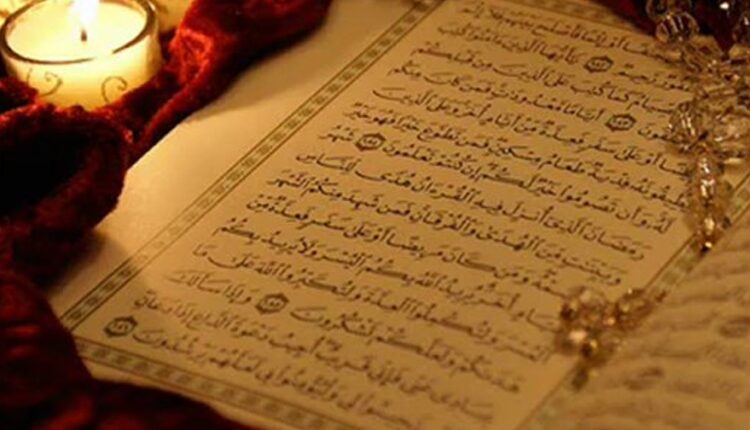 جَنَفًا أَوْ إِثْمًا فَأَصْلَحَ بَيْنَهُمْ فَلَآ إِثْمَ
غَفُورٌ رَّحِيمٌ ١٨٢ يَٰٓأَيُّهَا ٱلَّذِينَ ءَامَنُوا۟ كُتِبَ
ٱلصِّيَامُ كَمَا كُتِبَ عَلَى ٱلَّذِينَ مِن قَبْلِكُمْ
تَتَّقُونَ ١٨٣ أَيَّامًا مَّعْدُودَٰتٍ فَمَن كَانَ مِنكُم
مَّرِيضًا أَوْ عَلَىٰ سَفَرٍ فَعِدَّةٌ مِّنْ أَيَّامٍ أُخَرَ وَعَلَى ٱلَّذِينَ
يُطِيقُونَهُۥ فِدْيَةٌ طَعَامُ مِسْكِينٍ فَمَن تَطَوَّعَ خَيْرًا فَهُوَ خَيْرٌ
لَّهُۥ وَأَن تَصُومُوا۟ خَيْرٌ لَّكُمْ إِن كُنتُمْ تَعْلَمُونَ ١٨٤ شَهْرُ
رَمَضَانَ ٱلَّذِىٓ أُنزِلَ فِيهِ ٱلْقُرْءَانُ هُدًى لِّلنَّاسِ
وَبَيِّنَٰتٍ مِّنَ ٱلْهُدَىٰ وَٱلْفُرْقَانِ فَمَن شَهِدَ مِنكُمُ ٱلشَّهْرَ
فَلْيَصُمْهُ وَمَن كَانَ مَرِيضًا أَوْ عَلَىٰ سَفَرٍ فَعِدَّةٌ مِّنْ
أَيَّامٍ أُخَرَ يُرِيدُ ٱللَّهُ بِكُمُ ٱلْيُسْرَ وَلَا يُرِيدُ بِكُمُ
ٱلْعُسْرَ وَلِتُكْمِلُوا۟ ٱلْعِدَّةَ وَلِتُكَبِّرُوا۟ ٱللَّهَ عَلَىٰ مَا
هَدَىٰكُمْ وَلَعَلَّكُمْ تَشْكُرُونَ ١٨٥ وَإِذَا سَأَلَكَ
عِبَادِى عَنِّى فَإِنِّى قَرِيبٌ أُجِيبُ دَعْوَةَ ٱلدَّاعِ إِذَا دَعَانِ
فَلْيَسْتَجِيبُوا۟ لِى وَلْيُؤْمِنُوا۟ بِى لَعَلَّهُمْ يَرْشُدُونَ ١٨٦